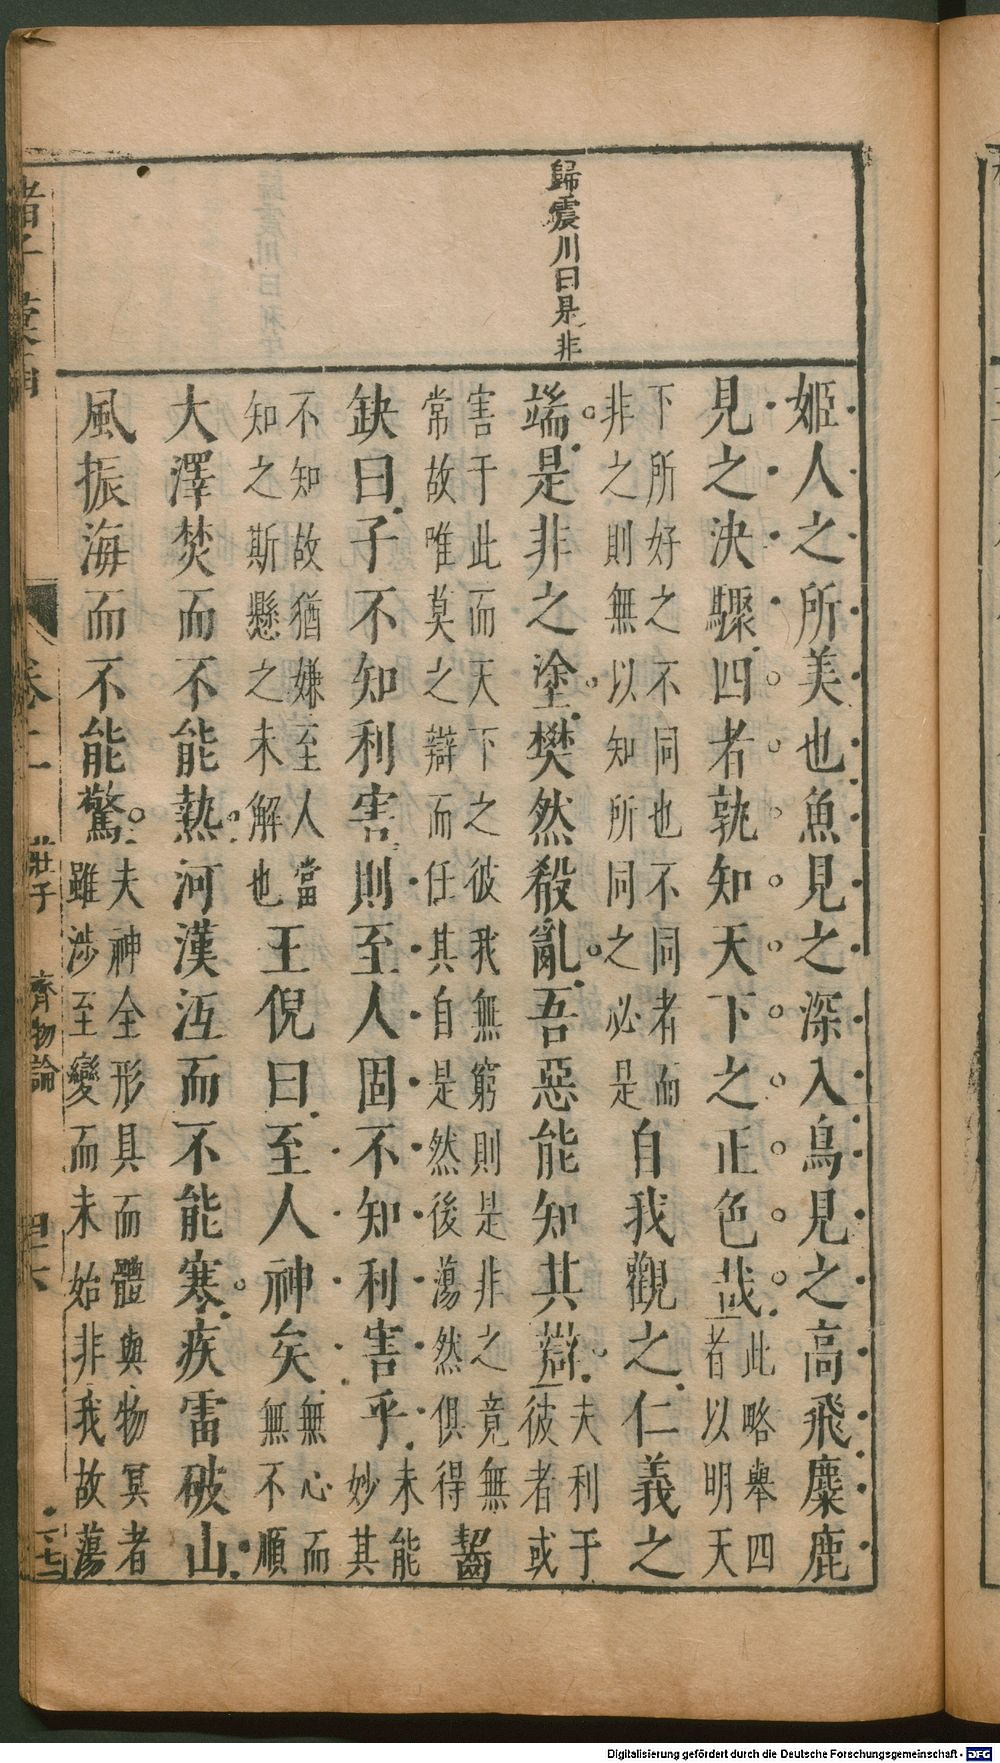 歸震川曰是非
姬人之所美也魚見之深入鳥見之高飛麋鹿
見之決驟四者孰知天下之正色哉此略舉四
者以明天
下所好之不同也不同者而
非之則無以知所同之必是
自我觀之仁義之
端是非之塗樊然殽亂吾惡能知其辯夫利于
彼者或
害于此而天下之彼我無窮則是非之竟無
常故唯莫之辯而任其自是然後蕩然俱得
齧
缺曰子不知利害則至人固不知利害乎未能
妙其
不知故猶嫌至人當
知之斯懸之未解也
王倪曰至人神矣無心而
無不順
大澤焚而不能熱河漢沍而不能寒疾雷破山
風振海而不能驚夫神全形具而體與物冥者
雖涉至變而未始非我故蕩
諸子彙函 卷二 莊子 齊物論
Digitalisierung gefördert durch die Deutsche Forschungsgemeinschaft - DFG